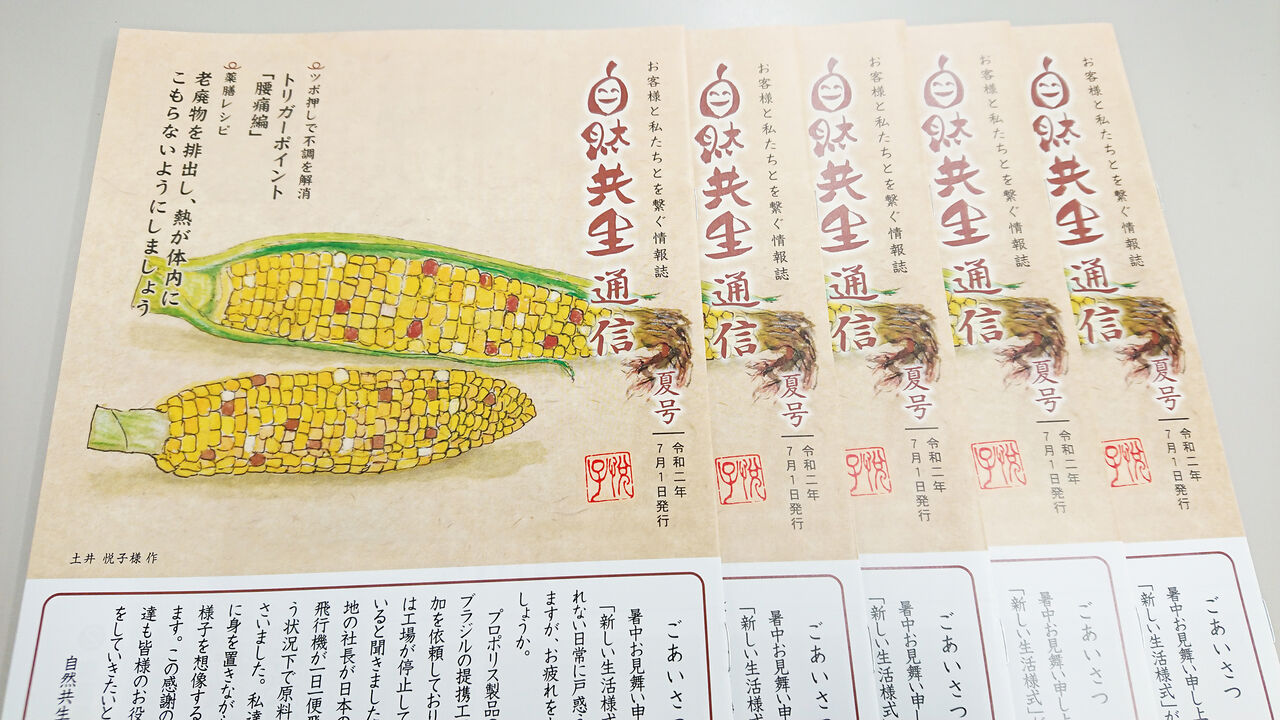 お客様と私たちとを繋ぐ情報誌
自然共生通信
夏号
令和二年
7月1日発行
悦子
ツボ押しで不調を解消
トリガーポイント
「腰痛編」
薬膳レシピ
老廃物を排出し、熱が体内に
こもらないようにしましょう
土井 悦子様 作
ごあいさつ
暑中お見舞い申
「新しい生活様
れない日常に戸惑
ますが、お疲れを
しょうか。
プロポリス製品
ブラジルの提携工
加を依頼しており
は工場が停止して
いると聞きました
地の社長が日本の
飛行機が一日一便飛
う状況下で原料
さいました。私達
に身を置きなが
様子を想像する
ます。この感謝の
達も皆様のお役
をしていきたいと
自然共生
お客様と私たちとを繋ぐ情報誌
自然共生通信
夏号
令和二年
7月1日発行
悦子
ごあいさつ
暑中お見舞い申
「新しい生活様
お客様と私たちとを繋ぐ情報誌
自然共生通信
夏号
令和二年
7月1日発行
悦子
ごあいさつ
暑中お見舞い申
「新しい生活様式
お客様と私たちとを繋ぐ情報誌
自然共生通信
夏号
令和二年
7月1日発行
悦子
ごあいさつ
暑中お見舞い申し上
「新しい生活様式」
お客様と私たちとを繋ぐ情報誌
自然共生通信
夏号
令和二年
7月1日発行
悦子
ごあいさつ
暑中お見舞い申し上
「新しい生活様式」が